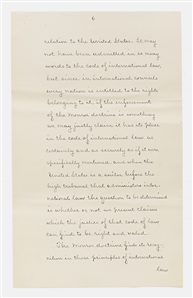 6
relation to the United States. It may
not have been admitted in so many
words to the code of international law,
but since in international councils
every nation is entitled to the rights
belonging to it, if the enforcement
of the Monroe doctrine is something
we may justly claim it has its place
in the code of international law as
certainly and as securely as if it were
specifically mentioned, and when the
United States is a suitor before the
high tribunal that administers inter-
national law the question to be determined
is whether or not we present claims
which the justice of that code of law
can find to be right and valid.
The Monroe doctrine finds its recog-
nition in those principles of international
law